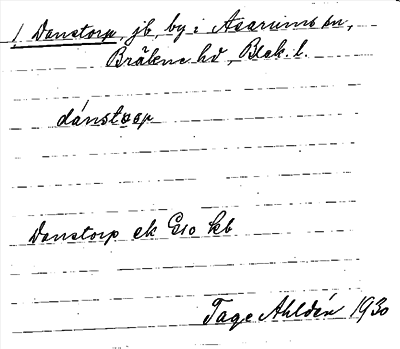 1 Danstorp, jb, by i Asarums sn,
Bräkne hd, Blek. l.
dánstɷrp
Danstorp ek G10 kb
Tage Ahldén 1930